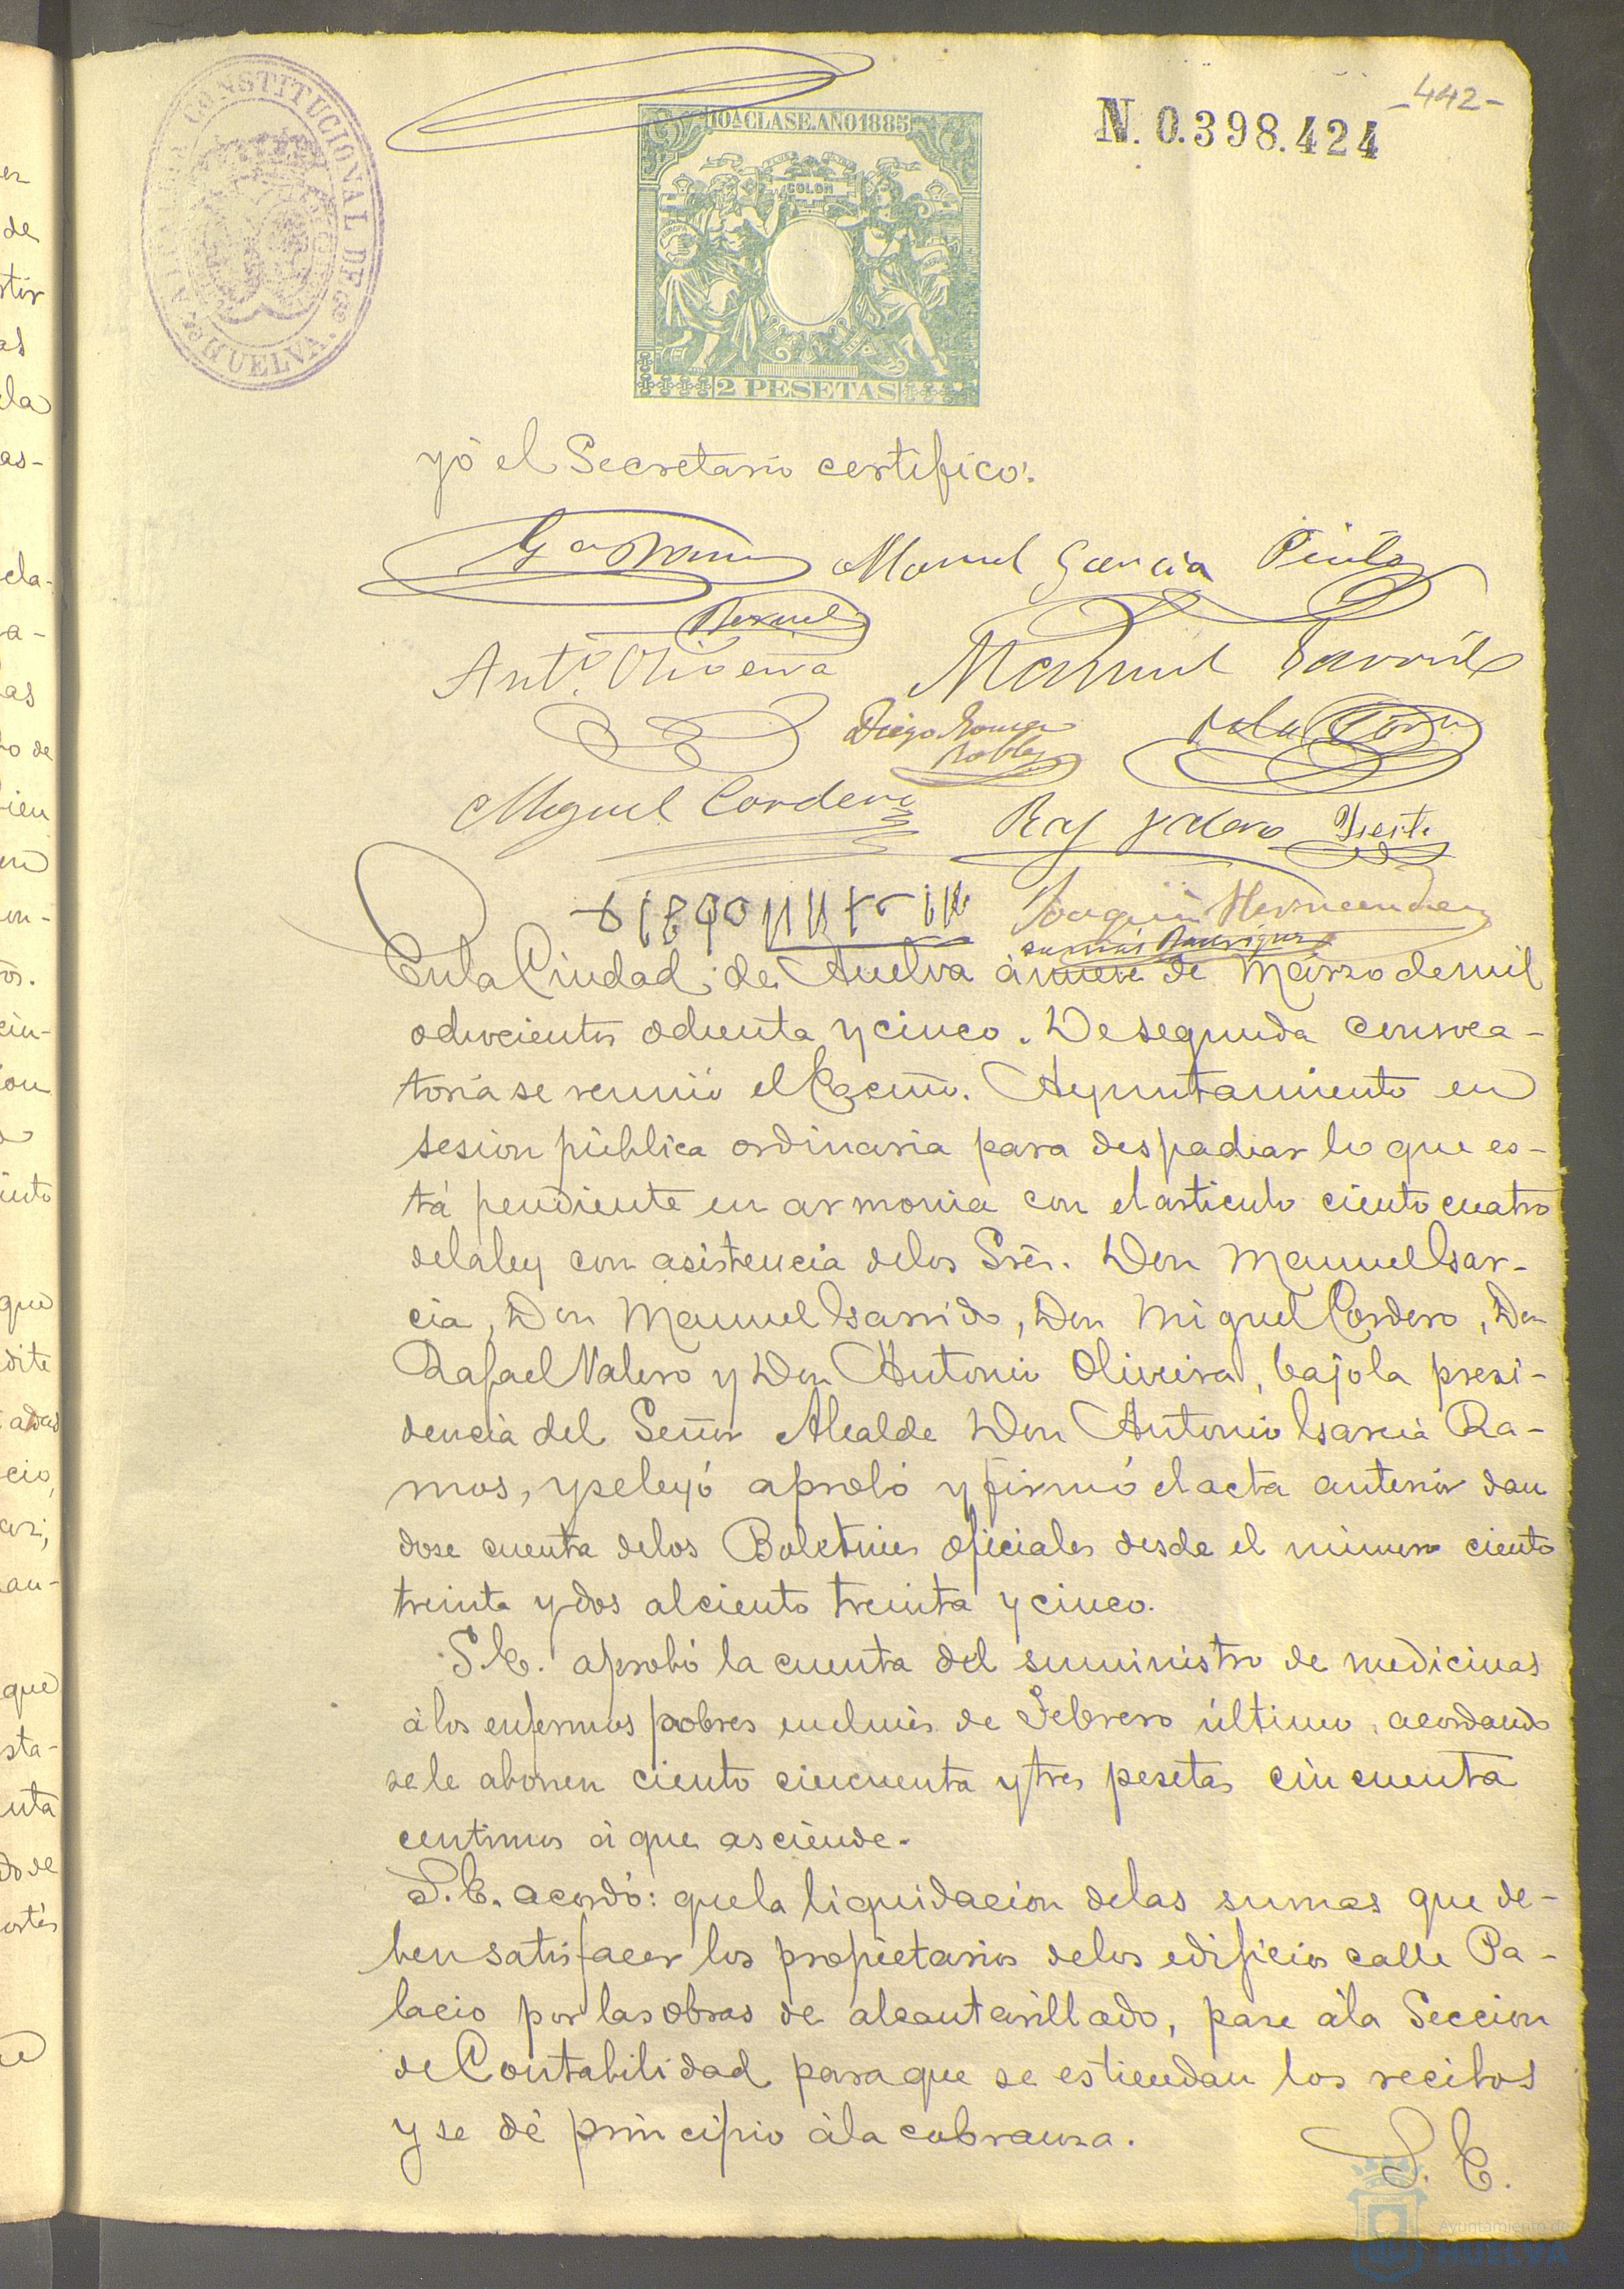 -442-
N. 0.398.424
CONSTITUCIONAL DE
HUELVA.
10ª CLASE. AÑO 1885
COLON
EUROPA
2 PESETAS
yó el Secretario certifico:
Manuel Garcia Pinto
Antº Oliveira Manuel Garrido
Diego
Robles
Miguel Cordero Raf Valero
Joaquin Hernandez
En la Ciudad de Huelva á nueve de Marzo de mil
ochocientos ochenta y cinco. De segunda convoca-
toria se reunió el Excmo. Ayuntamiento en
sesion pública ordinaria para despachar lo que es-
tá pendiente en armonia con el articulo ciento cuatro
de la ley con asistencia de los Sres. Don Manuel Gar-
cia, Don Manuel Garrido, Don Miguel Cordero, Don
Rafael Valero y Don Antonio Oliveira, bajo la presi-
dencia del Señor Alcalde Don Antonio Garcia Ra-
mos, y se leyó aprobó y firmó el acta anterior dan
dose cuenta de los Boletines oficiales desde el número ciento
treinta y dos al ciento treinta y cinco.
S.E. aprobó la cuenta del suministro de medicinas
á los enfermos pobres en el mes de Febrero último, acordando
se le abonen ciento cincuenta y tres pesetas cincuenta
centimos á que asciende.
S.E. acordó: que la liquidacion de las sumas que de-
ben satisfacer los propietarios de los edificios calle Pa-
lacio por las obras de alcantarillado, pase á la Seccion
de Contabilidad para que se estiendan los recibos
y se dé principio á la cobranza.
S. E.
Ayuntamiento de
HUELVA